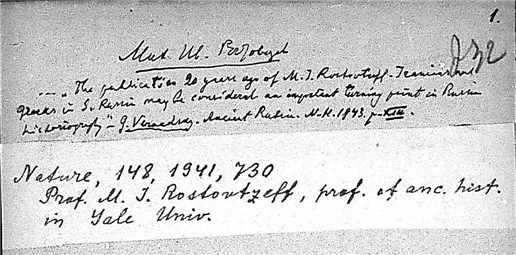 1.
Mat. M.
"The publication 20 years ago of M. I. Rostovtzeff. Iranians and
Greeks in S. Russia may be considered an important turning point in Russian
historiography" – G. Vernadsky. Ancient Russia. N.H. 1943. p. XIII.
Nature, 148, 1941, 730
Prof. M. I. Rostovtzeff, prof. of anc. hist.
in Yale Univ.